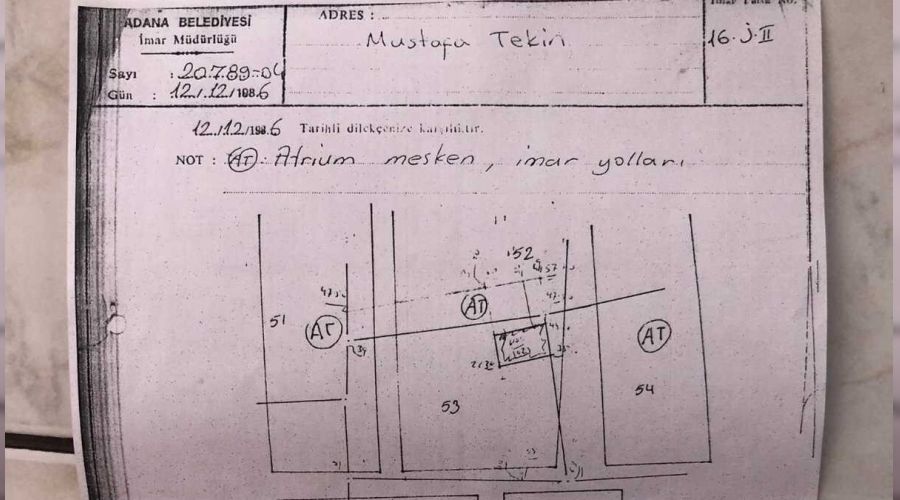 ADANA BELEDİYESİ
İmar Müdürlüğü
Sayı : 20789-04
Gün : 12/12/1986
ADRES :
Mustafa Tekin
16.J.II
12/12/1986 Tarihli dilekçenize karşılıktır.
NOT : (AT): Atrium mesken, imar yolları
52
AT
51
AT
AT
53
54